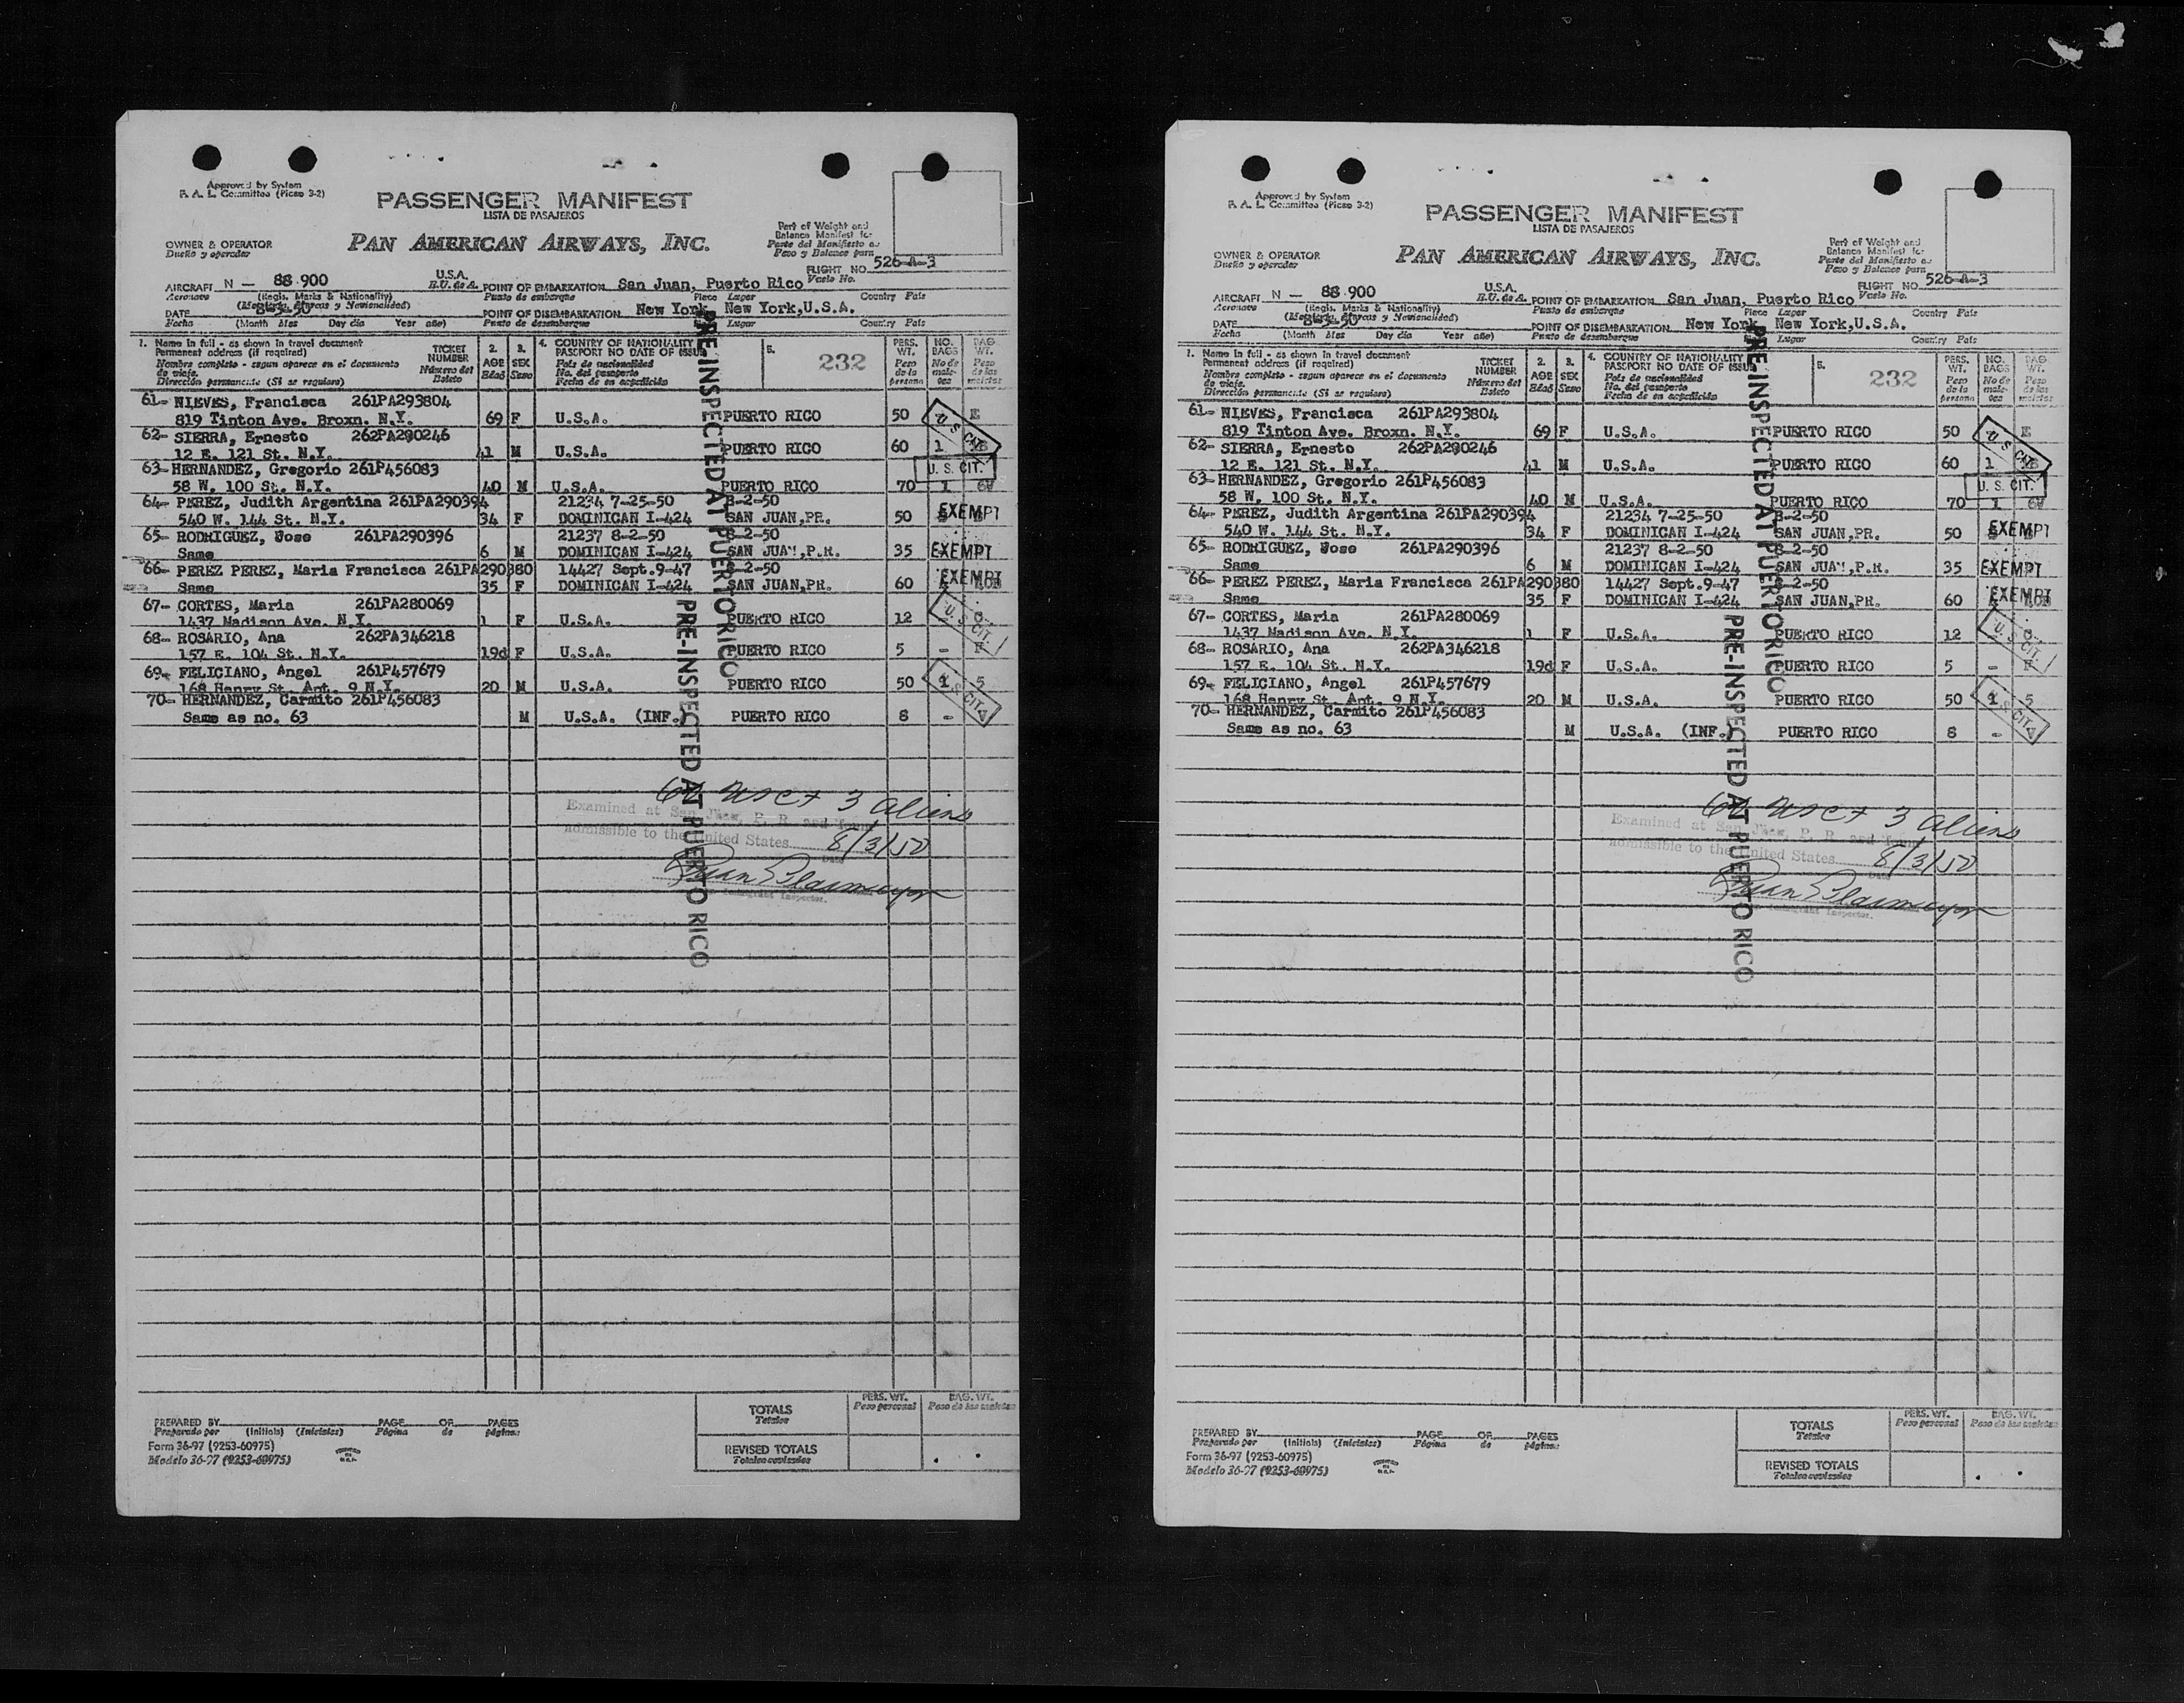 Approved by System
F. A. L. Committee (Picao 3-2)
PASSENGER MANIFEST
LISTA DE PASAJEROS
PAN AMERICAN AIRWAYS, INC.
Part of Weight and
Balance Manifest for
Parte del Manifiesto de
Peso y Balance para
OWNER & OPERATOR
Dueño y operador
FLIGHT NO. 526-A-3
Vuelo No.
AIRCRAFT N — 88900 U.S.A. POINT OF EMBARKATION San Juan, Puerto Rico
Aeronave (Regis. Marks & Nationality) E.U. de A. Punto de embarque Place Lugar Country País
DATE 8-3-50 POINT OF DISEMBARKATION New York, New York, U.S.A.
Fecha (Month Mes Day día Year año) Punto de desembarque Lugar Country País
1. Name in full - as shown in travel document
Permanent address (if required)
Nombre completo - segun aparece en el documento
de viaje.
Dirección permanente (Si se requiere)
TICKET
NUMBER
Número del
Boleto
2.
AGE
Edad
3.
SEX
Sexo
4. COUNTRY OF NATIONALITY
PASSPORT NO DATE OF ISSUE
País de nacionalidad
No. del pasaporte
Fecha de su expedición
5.
232
PERS.
WT.
Peso
de la
persona
NO.
BAGS
No de
male-
tas
BAG
WT.
Peso
de las
maletas
61- NIEVES, Francisca 261PA293804
819 Tinton Ave. Broxn. N.Y. 69 F U.S.A. PUERTO RICO 50
62- SIERRA, Ernesto 262PA290246
12 E. 121 St. N.Y. 41 M U.S.A. PUERTO RICO 60 1
U.S. CIT.
63- HERNANDEZ, Gregorio 261P456083
58 W. 100 St. N.Y. 40 M U.S.A. PUERTO RICO 70 1
U.S. CIT.
64- PEREZ, Judith Argentina 261PA290394 21234 7-25-50 8-2-50
540 W. 144 St. N.Y. 34 F DOMINICAN I-424 SAN JUAN, PR. 50 EXEMPT
65- RODRIGUEZ, Jose 261PA290396 21237 8-2-50 8-2-50
Same 6 M DOMINICAN I-424 SAN JUAN, P.R. 35 EXEMPT
66- PEREZ PEREZ, Maria Francisca 261PA290380 14427 Sept.9-47 8-2-50
Same 35 F DOMINICAN I-424 SAN JUAN, PR. 60 EXEMPT
67- CORTES, Maria 261PA280069
1437 Madison Ave. N.Y. 1 F U.S.A. PUERTO RICO 12
68- ROSARIO, Ana 262PA346218
157 E. 104 St. N.Y. 19d F U.S.A. PUERTO RICO 5 -
U.S. CIT.
69- FELICIANO, Angel 261P457679
168 Henry St. Apt. 9 N.Y. 20 M U.S.A. PUERTO RICO 50 1 5
70- HERNANDEZ, Carmito 261P456083
Same as no. 63 M U.S.A. (INF.) PUERTO RICO 8 -
U.S. CIT.
PRE-INSPECTED AT PUERTO RICO
PRE-INSPECTED AT PUERTO RICO
3 aliens
Examined at San Juan, P. R. and found
admissible to the United States 8/3/50
Date
Immigrant Inspector.
TOTALS
Totales
REVISED TOTALS
Totales revisados
PERS. WT.
Peso personal
BAG. WT.
Peso de las maletas
PREPARED BY PAGE OF PAGES
Preparado por (Initials) (Iniciales) Página de páginas
Form 36-97 (9253-60975)
Modelo 36-97 (9253-60975)
Approved by System
F. A. L. Committee (Picao 3-2)
PASSENGER MANIFEST
LISTA DE PASAJEROS
PAN AMERICAN AIRWAYS, INC.
Part of Weight and
Balance Manifest for
Parte del Manifiesto de
Peso y Balance para
OWNER & OPERATOR
Dueño y operador
FLIGHT NO. 526-A-3
Vuelo No.
AIRCRAFT N — 88900 U.S.A. POINT OF EMBARKATION San Juan, Puerto Rico
Aeronave (Regis. Marks & Nationality) E.U. de A. Punto de embarque Place Lugar Country País
DATE 8-3-50 POINT OF DISEMBARKATION New York, New York, U.S.A.
Fecha (Month Mes Day día Year año) Punto de desembarque Lugar Country País
1. Name in full - as shown in travel document
Permanent address (if required)
Nombre completo - segun aparece en el documento
de viaje.
Dirección permanente (Si se requiere)
TICKET
NUMBER
Número del
Boleto
2.
AGE
Edad
3.
SEX
Sexo
4. COUNTRY OF NATIONALITY
PASSPORT NO DATE OF ISSUE
País de nacionalidad
No. del pasaporte
Fecha de su expedición
5.
232
PERS.
WT.
Peso
de la
persona
NO.
BAGS
No de
male-
tas
BAG
WT.
Peso
de las
maletas
61- NIEVES, Francisca 261PA293804
819 Tinton Ave. Broxn. N.Y. 69 F U.S.A. PUERTO RICO 50
62- SIERRA, Ernesto 262PA290246
12 E. 121 St. N.Y. 41 M U.S.A. PUERTO RICO 60 1
U.S. CIT.
63- HERNANDEZ, Gregorio 261P456083
58 W. 100 St. N.Y. 40 M U.S.A. PUERTO RICO 70 1
U.S. CIT.
64- PEREZ, Judith Argentina 261PA290394 21234 7-25-50 8-2-50
540 W. 144 St. N.Y. 34 F DOMINICAN I-424 SAN JUAN, PR. 50 EXEMPT
65- RODRIGUEZ, Jose 261PA290396 21237 8-2-50 8-2-50
Same 6 M DOMINICAN I-424 SAN JUAN, P.R. 35 EXEMPT
66- PEREZ PEREZ, Maria Francisca 261PA290380 14427 Sept.9-47 8-2-50
Same 35 F DOMINICAN I-424 SAN JUAN, PR. 60 EXEMPT
67- CORTES, Maria 261PA280069
1437 Madison Ave. N.Y. 1 F U.S.A. PUERTO RICO 12
68- ROSARIO, Ana 262PA346218
157 E. 104 St. N.Y. 19d F U.S.A. PUERTO RICO 5 -
U.S. CIT.
69- FELICIANO, Angel 261P457679
168 Henry St. Apt. 9 N.Y. 20 M U.S.A. PUERTO RICO 50 1 5
70- HERNANDEZ, Carmito 261P456083
Same as no. 63 M U.S.A. (INF.) PUERTO RICO 8 -
U.S. CIT.
PRE-INSPECTED AT PUERTO RICO
PRE-INSPECTED AT PUERTO RICO
3 aliens
Examined at San Juan, P. R. and found
admissible to the United States 8/3/50
Date
Immigrant Inspector.
TOTALS
Totales
REVISED TOTALS
Totales revisados
PERS. WT.
Peso personal
BAG. WT.
Peso de las maletas
PREPARED BY PAGE OF PAGES
Preparado por (Initials) (Iniciales) Página de páginas
Form 36-97 (9253-60975)
Modelo 36-97 (9253-60975)